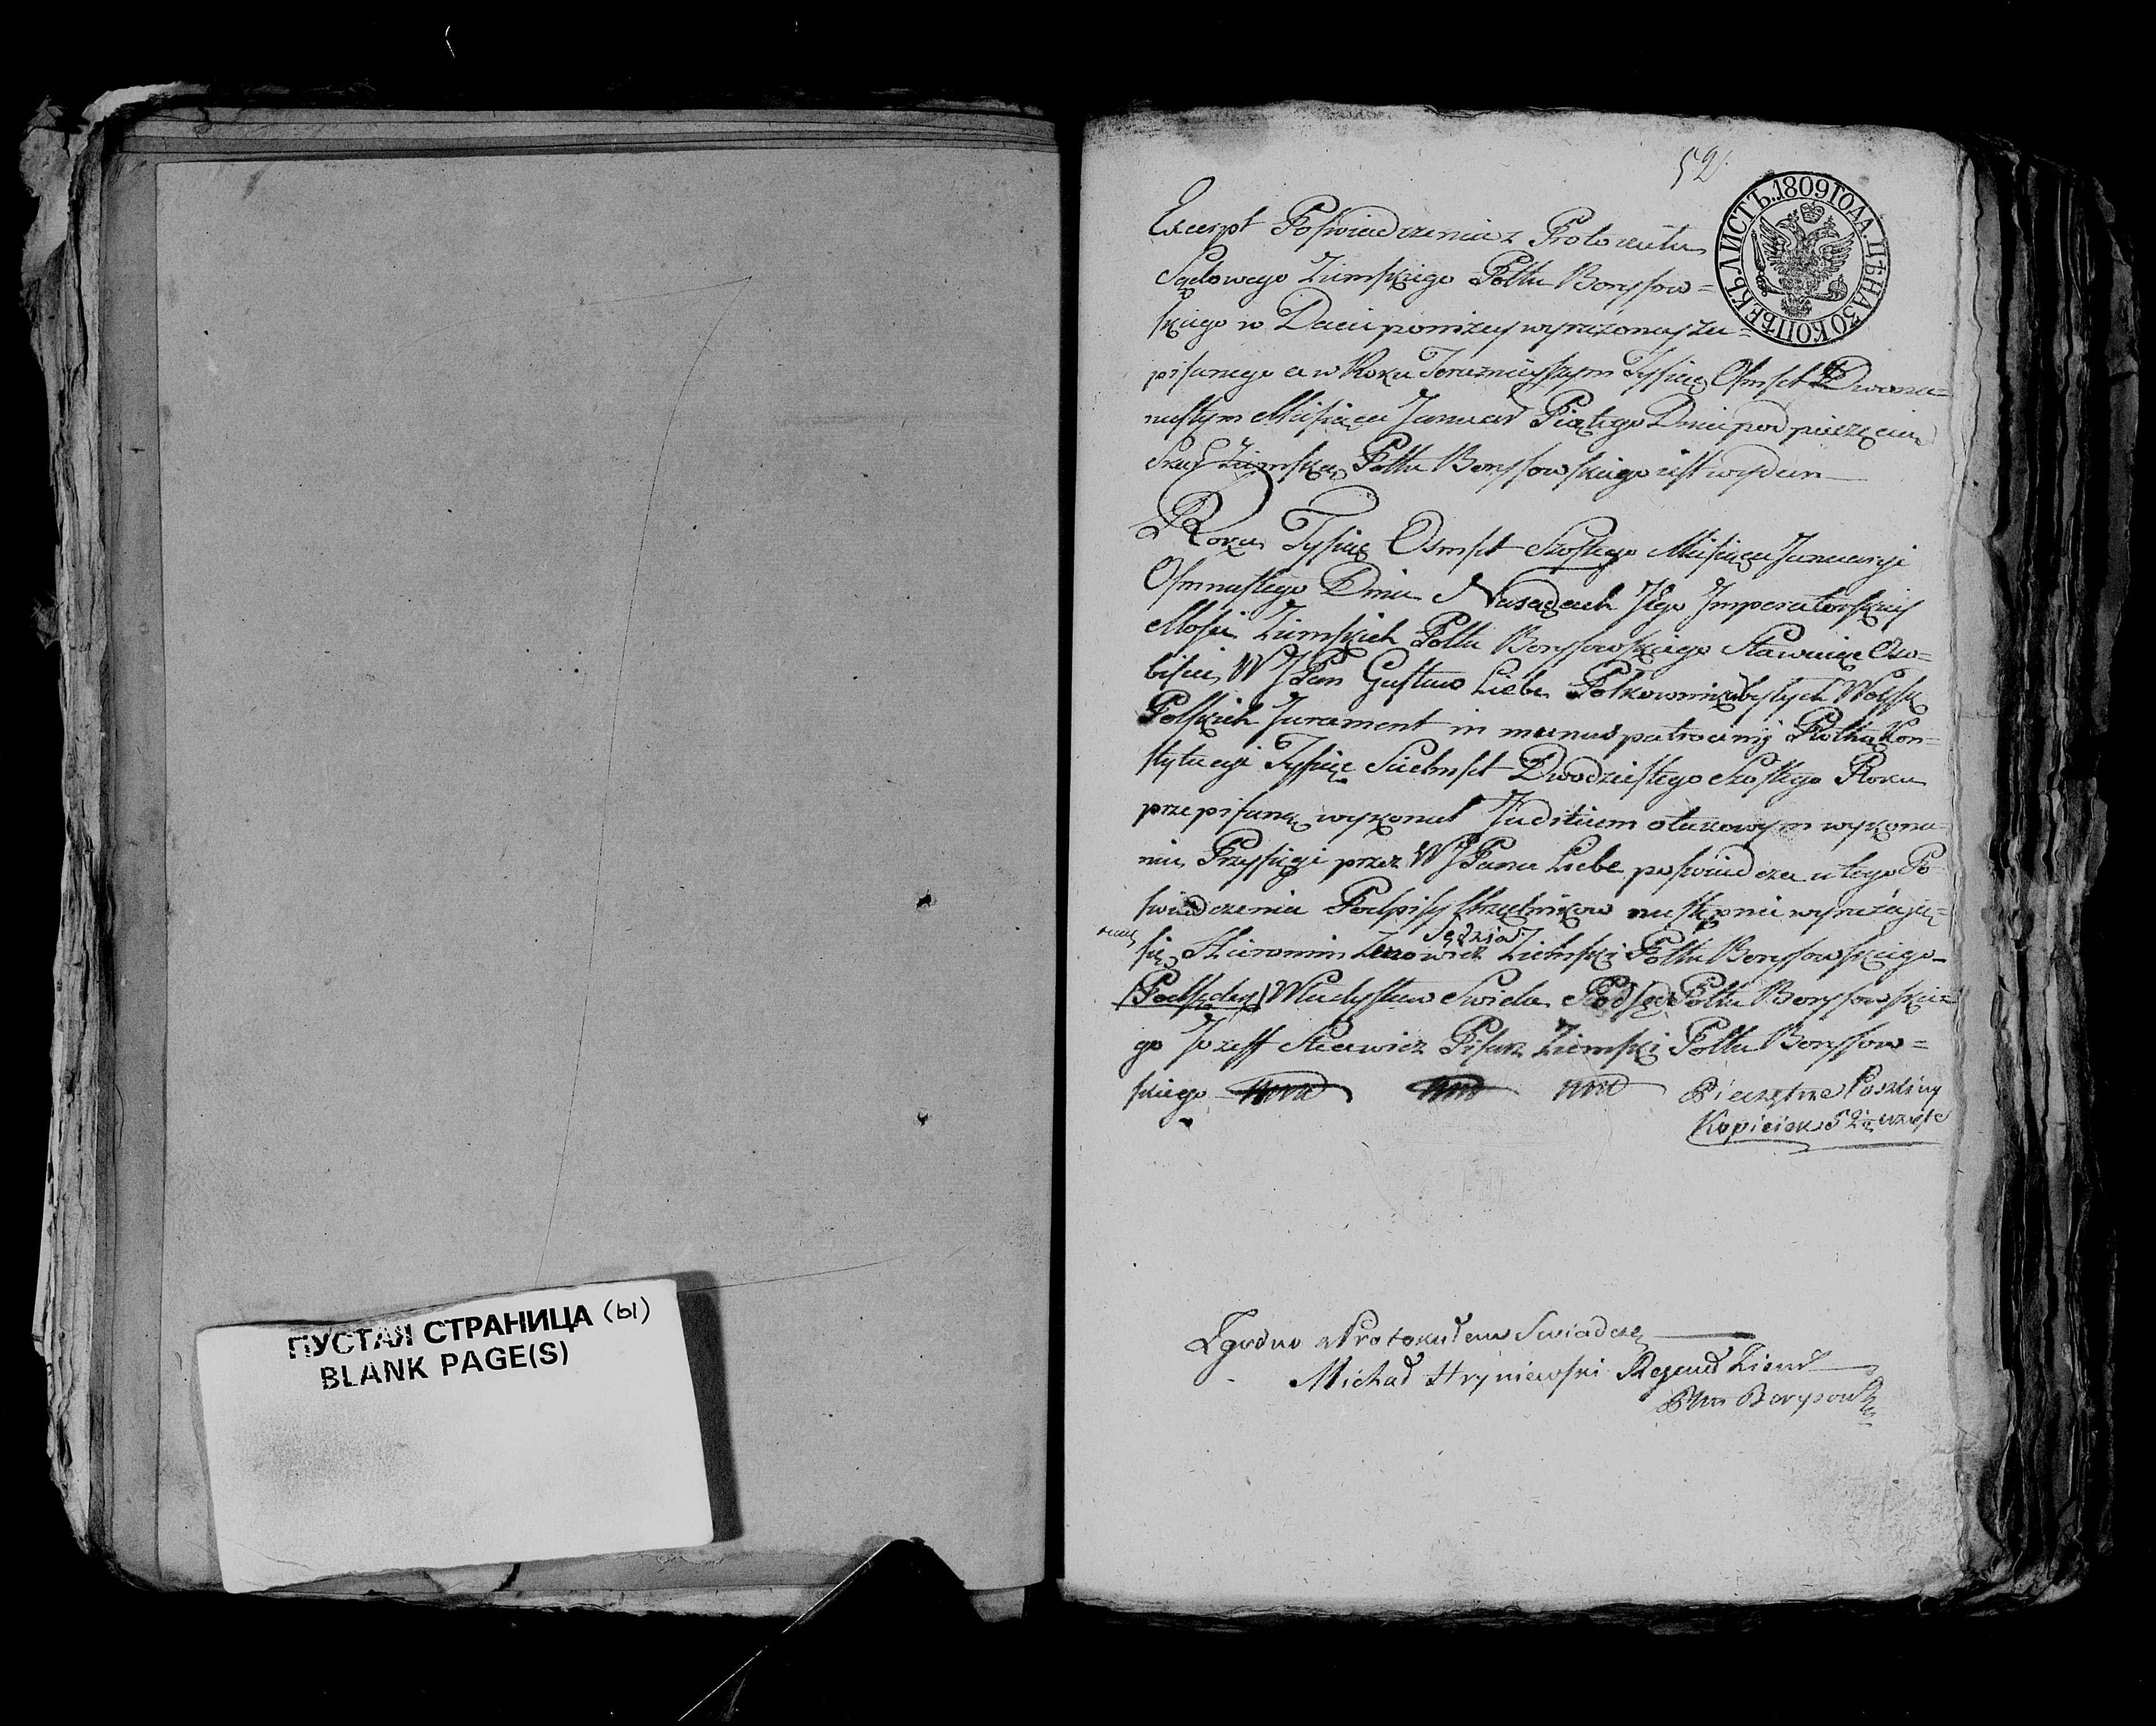 ПУСТАЯ СТРАНИЦА (ы)
BLANK PAGE(S)
52
ЛИСТЪ. 1809 ГОДА. ЦѢНА 50 КОПѢЕКЪ
Excerpt Poswiadczenia z Protokułu
Sądowego Ziemskiego Pottu Boryssow=
skiego w Dacie poniżey wyrażoney za=
pisanego a w Roku Teraznieyszym Tysiąc Osmset Dwona=
nastym Miesiąca Januar Piątego Dnia pod pieczęcią
Ziemską Pottu Boryssowskiego iest wydan
Roku Tysiąc Osmset Szostego Miesiąca Januaryi
Osmnastego Dnia Nasądach Jego Imperatorskiey
Mosci Ziemskich Pottu Boryssowskiego Stawaiąc Oso=
biscie W JPan Gustaw Liebe Połkownik bystych Woysk
Polskich Jurament in munus patrocinij Rothą Kon=
stytucyi Tysiąc Siedmset Dwodziestego Szostego Roku
przepisaną wykonał Juditium otakowym wykona=
niu Przysięgi przez W JPana Liebe poswiadcza u tego Po=
swiadczenia Podpisy Urzędnikow następnie wyrażaią=
się Hieronim Sędzia Ziemski Pottu Boryssowskiego
(Podsędek) Władysław Swida Podsęd Pottu Boryssowskie=
go Jozeff Pisarz Ziemski Pottu Boryssow=
skiego Pieczętne Poszliny
Kopieiek 52
Zgodno z Protokułem Swiadczę
Michał Hryniewski Regent Ziem
Pttu Borysow